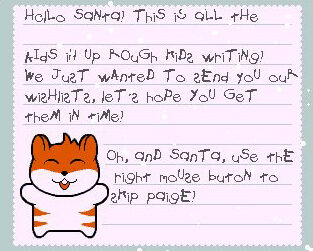 Hello Santa! This is all the
kids in Up Rough Kids writing!
We just wanted to send you our
wishlists, let's hope you get
them in time!
Oh, and Santa, use the
right mouse buton to
skip paige!